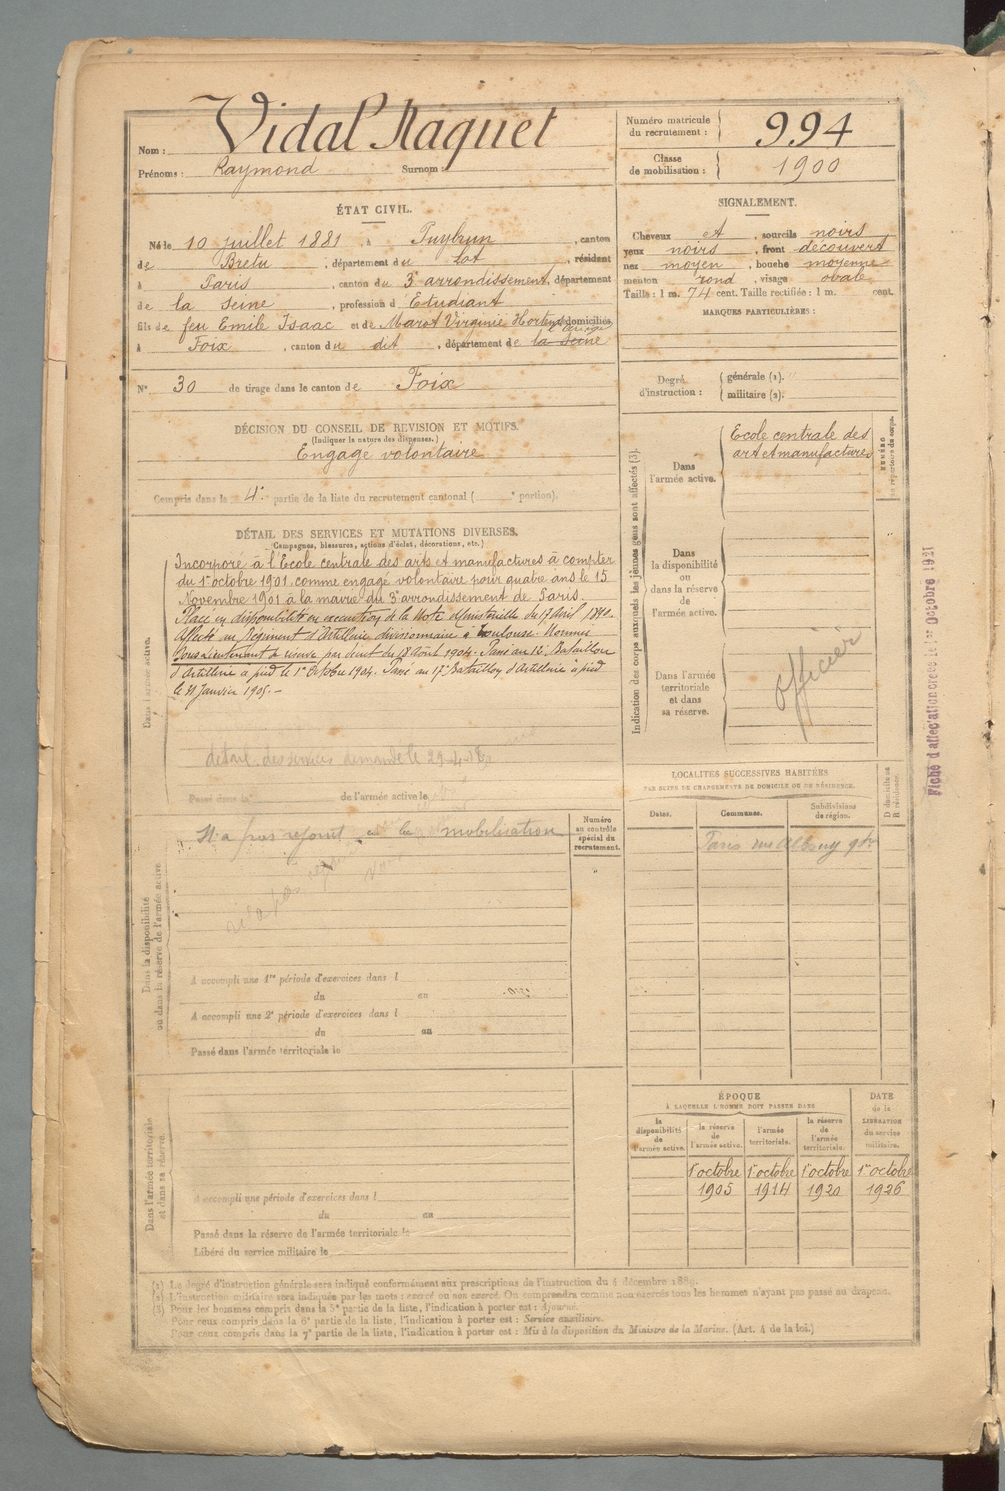 Nom : Vidal Naquet
Prénoms : Raymond Surnom :
Numéro matricule
du recrutement : 994
Classe
de mobilisation : 1900
ÉTAT CIVIL.
Né le 10 juillet 1881, à Puybrun, canton
de Bretu, département du Lot, résident
à Paris, canton du 3e arrondissement, département
de la Seine, profession d Etudiant
fils de feu Emile Isaac et de Marot Virginie Hortense domiciliés
à Foix, canton du dit, département de la Seine Ariège
N° 30 de tirage dans le canton de Foix
SIGNALEMENT.
Cheveux et, sourcils noirs
yeux noirs, front découvert
nez moyen, bouche moyenne
menton rond, visage ovale
Taille : 1 m. 74 cent. Taille rectifiée : 1 m. cent.
MARQUES PARTICULIÈRES :
Degré
d'instruction :
générale (1).
militaire (2).
DÉCISION DU CONSEIL DE REVISION ET MOTIFS.
(Indiquer la nature des dispenses.)
Engagé volontaire
Compris dans la 4e partie de la liste du recrutement cantonal ( e portion).
DÉTAIL DES SERVICES ET MUTATIONS DIVERSES.
(Campagnes, blessures, actions d'éclat, décorations, etc.)
Dans l'armée active.
Incorporé à l'Ecole centrale des arts et manufactures à compter
du 1er octobre 1901 comme engagé volontaire pour quatre ans le 15
Novembre 1901 à la mairie du 3e arrondissement de Paris.
Placé en disponibilité en exécution de la Note Ministérielle du 17 Avril
Affecté au Régiment d'Artillerie divisionnaire à Toulouse. Nommé
Sous Lieutenant de réserve par décret du 18 Août 1904. Passé au 12e Bataillon
d'Artillerie à pied le 1er Octobre 1904. Passé au 17e Bataillon d'Artillerie à pied
le 31 Janvier 1905.-
détail des services demandé le 29-4-16
Passé dans l de l'armée active le
Indication des corps auxquels les jeunes gens sont affectés (3).
Dans
l'armée active.
Ecole centrale des
art et manufactures
NUMÉRO
au répertoire du corps.
Dans
la disponibilité
ou
dans la réserve
de
l'armée active.
Dans l'armée
territoriale
et dans
sa réserve.
officier
Fiche d'affectation créée le 1er Octobre 1921
Dans la disponibilité
ou dans la réserve de l'armée active
N'a pas rejoint à la mobilisation
n'a pas rejoint
Numéro
au contrôle
spécial du
recrutement.
A accompli une 1re période d'exercices dans l
du au
A accompli une 2e période d'exercices dans l
du au
Passé dans l'armée territoriale le
LOCALITÉS SUCCESSIVES HABITÉES
PAR SUITE DE CHANGEMENTS DE DOMICILE OU DE RÉSIDENCE.
Dates.
Communes.
Subdivisions
de région.
D domicile ou
R résidence.
Paris rue Albouy 9
Dans l'armée territoriale
et dans sa réserve.
A accompli une période d'exercices dans l
du au
Passé dans la réserve de l'armée territoriale le
Libéré du service militaire le
ÉPOQUE
À LAQUELLE L'HOMME DOIT PASSER DANS
la
disponibilité
de
l'armée active.
la réserve
de
l'armée active.
l'armée
territoriale.
la réserve
de
l'armée
territoriale.
DATE
de la
LIBÉRATION
du service
militaire.
1er octobre 1er octobre 1er octobre 1er octobre
1905 1914 1920 1926
(1) Le degré d'instruction générale sera indiqué conformément aux prescriptions de l'instruction du 4 décembre 1889.
(2) L'instruction militaire sera indiquée par les mots : exercé ou non exercé. On comprendra comme non exercés tous les hommes n'ayant pas passé au drapeau.
(3) Pour les hommes compris dans la 5e partie de la liste, l'indication à porter est : Ajourné.
Pour ceux compris dans la 6e partie de la liste, l'indication à porter est : Service auxiliaire.
Pour ceux compris dans la 7e partie de la liste, l'indication à porter est : Mis à la disposition du Ministre de la Marine. (Art. 4 de la loi.)